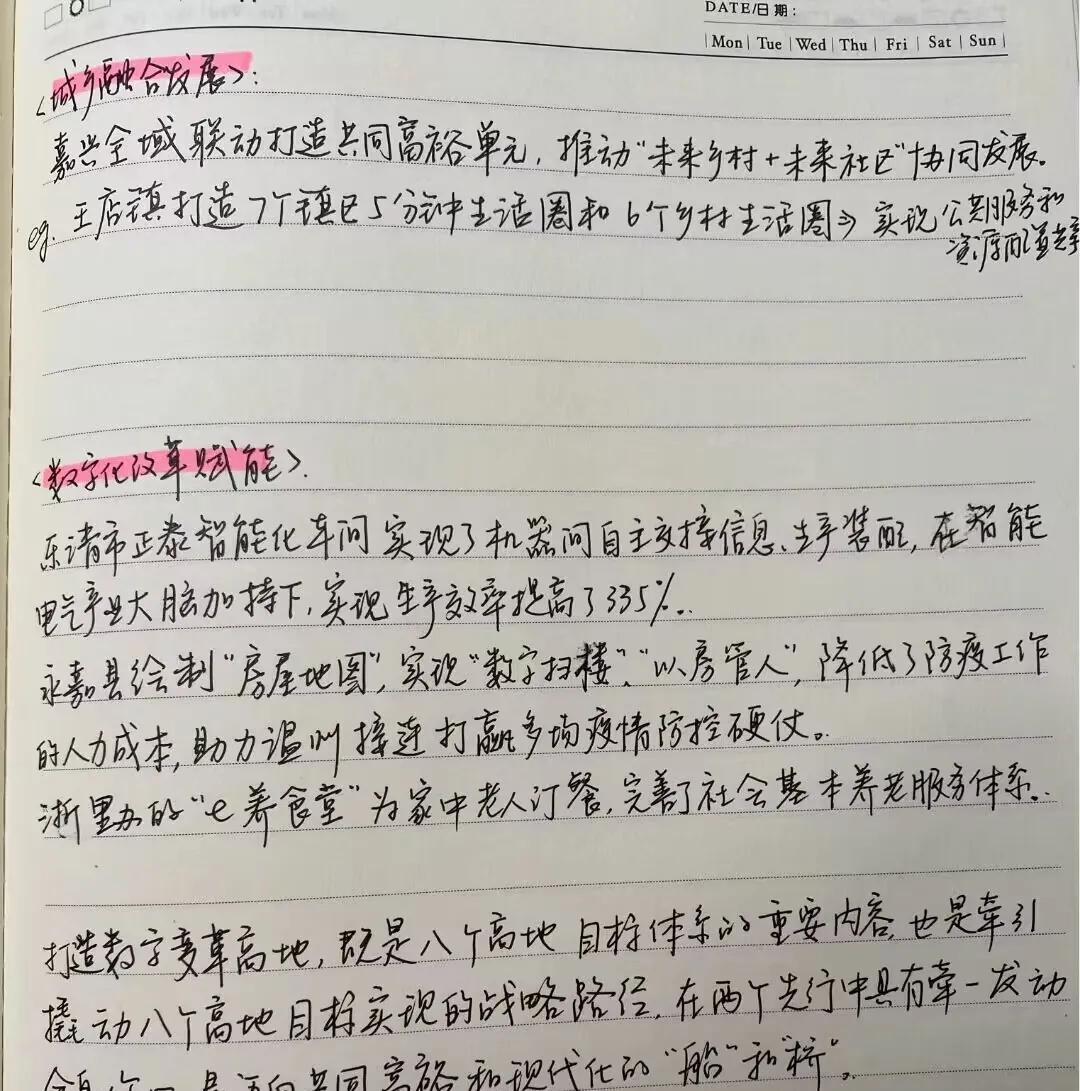 DATE/日期:
Mon Tue Wed Thu Fri Sat Sun
<城乡融合发展>:
嘉兴全域联动打造共同富裕单元，推动“未来乡村+未来社区”协同发展。
eg. 王店镇打造7个镇区5分钟生活圈和6个乡村生活圈⇒实现公共服务和
资源配置共享
<数字化改革赋能>.
乐清市正泰智能化车间实现了机器间自主交接信息、生产装配，在智能
电气产业大脑加持下，实现生产效率提高了335%。
永嘉县绘制“房屋地图”，实现“数字扫楼”、“以房管人”，降低了防疫工作
的人力成本，助力温州接连打赢多场疫情防控硬仗。
浙里办的“e养食堂”为家中老人订餐，完善了社会基本养老服务体系。
打造数字变革高地，既是八个高地目标体系的重要内容，也是牵引
撬动八个高地目标实现的战略路径，在两个先行中具有牵一发动
共同富裕和现代化的“船”和“桥”。